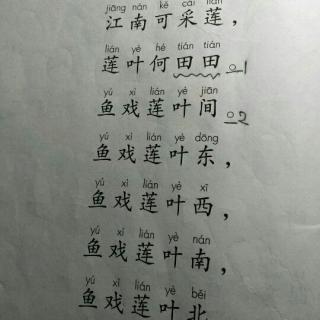 jiāng nán kě cǎi lián
江南可采莲，
lián yè hé tián tián
莲叶何田田 1
yú xì lián yè jiān
鱼戏莲叶间 2
yú xì lián yè dōng
鱼戏莲叶东，
yú xì lián yè xī
鱼戏莲叶西，
yú xì lián yè nán
鱼戏莲叶南，
yú xì lián yè běi
鱼戏莲叶北